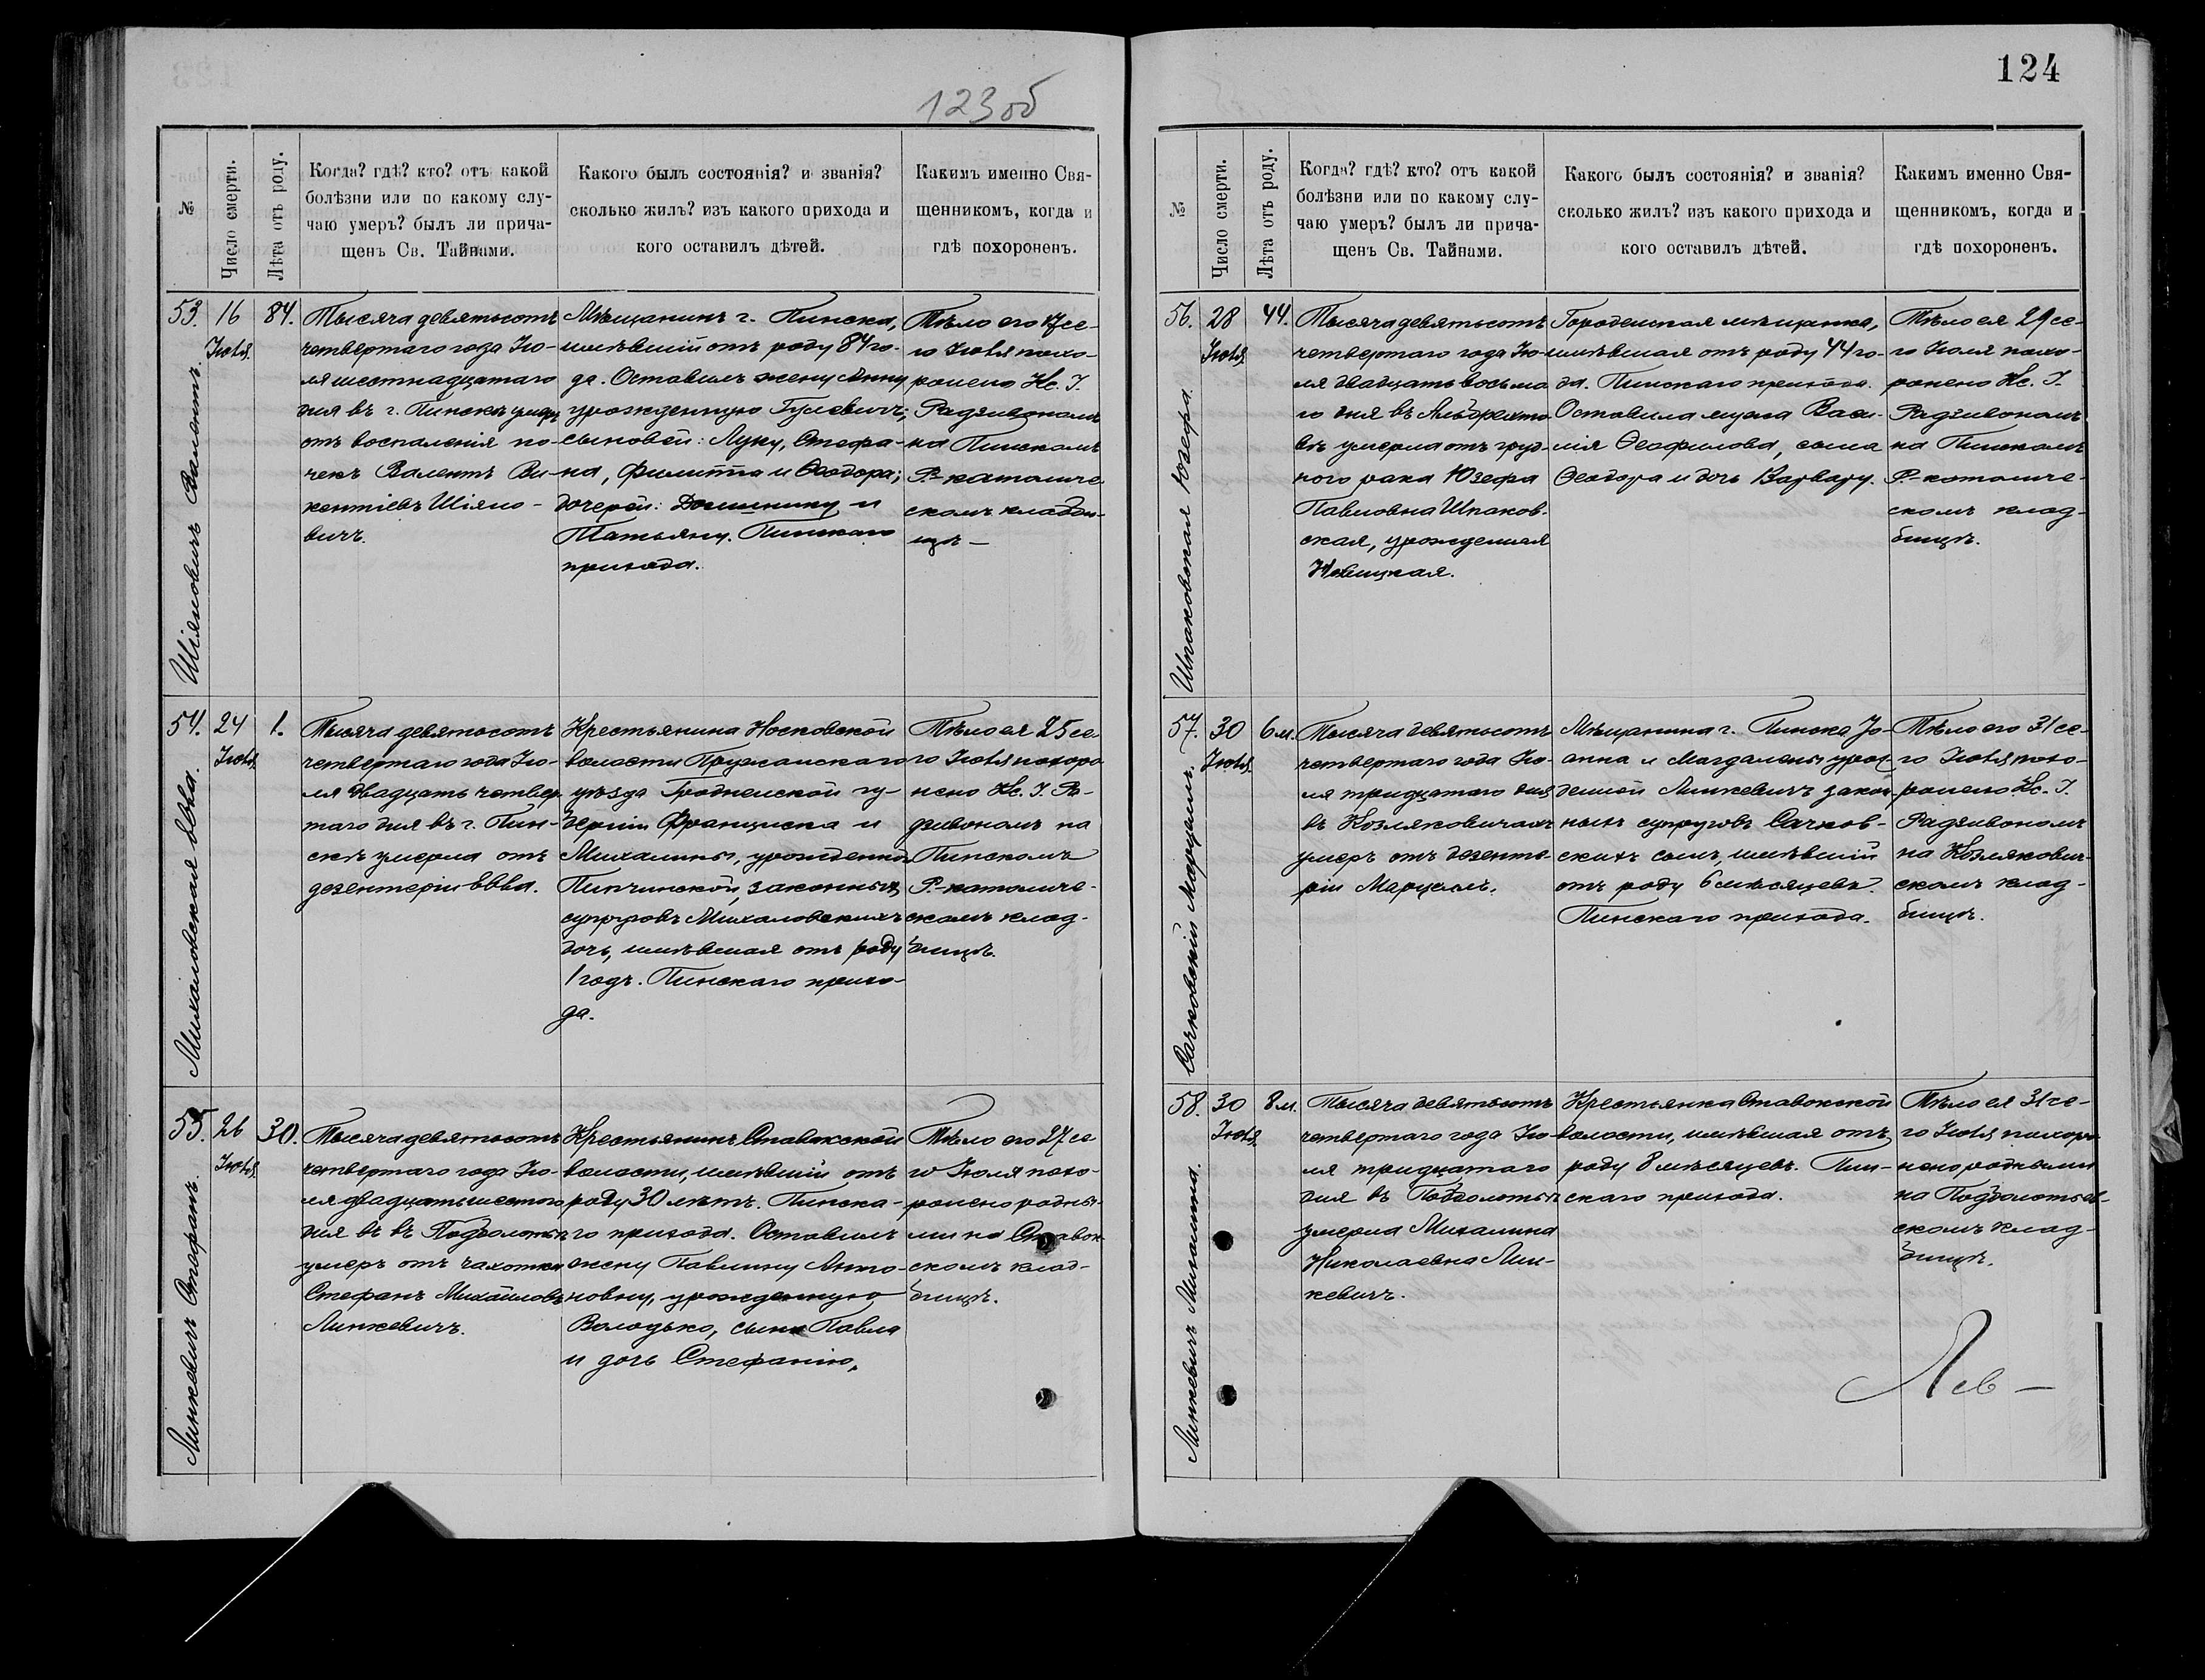 123об
№
Число смерти.
Лѣта отъ роду.
Когда? гдѣ? кто? отъ какой
болѣзни или по какому слу-
чаю умеръ? былъ ли прича-
щенъ Св. Тайнами.
Какого былъ состоянія? и званія?
сколько жилъ? изъ какого прихода и
кого оставилъ дѣтей.
Какимъ именно Свя-
щенникомъ, когда и
гдѣ похороненъ.
53.
Шіяновичъ Валентъ.
16
Іюля
84.
Тысяча девятьсотъ
четвертаго года Ію-
ля шестнадцатаго
дня въ г. Пинскѣ умеръ
отъ воспаленія по-
чекъ Валентъ Ви-
кентіевъ Шіяно-
вичъ.
Мѣщанинъ г. Пинска,
имѣвшій отъ роду 84 го-
да. Оставилъ жену Анну
урожденную Гулевичъ;
сыновей: Луку, Стефа-
на, Филиппа и Ѳеодора;
дочерей: Доминику и
Татьяну. Пинскаго
прихода.
Тѣло его 17 се-
го Іюля похо-
ронено Кс. І.
Радзивономъ
на Пинскомъ
Р-католиче-
скомъ кладби-
щѣ —
54.
Михаловская Евва.
24
Іюля
1.
Тысяча девятьсотъ
четвертаго года Ію-
ля двадцать четвер
таго дня въ г. Пин-
скѣ умерла отъ
дезентеріи Евва.
Крестьянина Носковской
волости Пружанскаго
уѣзда Гродненской гу-
берніи Франциска и
Михалины, урожденной
Пипчинской, законныхъ
супруговъ Михаловскихъ
дочь, имѣвшая отъ роду
1 годъ. Пинскаго прихо-
да.
Тѣло ея 25 се-
го Іюля похоро
нено Кс. І. Ра-
дзивономъ на
Пинскомъ
Р-католиче-
скомъ клад-
бищѣ.
55.
Линкевичъ Стефанъ.
26
Іюля
30.
Тысяча девятьсотъ
четвертаго года Ію-
ля двадцать шестого
дня въ въ Подболотьи
умеръ отъ чахотки
Стефанъ Михайловъ
Линкевичъ.
Крестьянинъ Ставокской
волости, имѣвшій отъ
роду 30 лѣтъ. Пинска-
го прихода. Оставилъ
жену Павлину Анто-
новну, урожденную
Володько, сына Павла
и дочь Стефанію.
Тѣло его 27 се
го Іюля похо-
ронено родны-
ми на Ставок-
скомъ клад-
бищѣ.
124
№
Число смерти.
Лѣта отъ роду.
Когда? гдѣ? кто? отъ какой
болѣзни или по какому слу-
чаю умеръ? былъ ли прича-
щенъ Св. Тайнами.
Какого былъ состоянія? и званія?
сколько жилъ? изъ какого прихода и
кого оставилъ дѣтей.
Какимъ именно Свя-
щенникомъ, когда и
гдѣ похороненъ.
56.
Шпаковская Юзефа.
28
Іюля
44.
Тысяча девятьсотъ
четвертаго года Ію-
ля двадцать восьма
го дня въ Альбрехто
вѣ умерла отъ груд-
ного рака Юзефа
Павловна Шпаков-
ская, урожденная
Новицкая.
Городенская мѣщанка,
имѣвшая отъ роду 44 го-
да. Пинскаго прихода.
Оставила мужа Васи-
лія Ѳеофилова, сына
Ѳеодора и дочь Варвару.
Тѣло ея 29 се-
го Іюля похо-
ронено Кс. І.
Радзивономъ
на Пинскомъ
Р-католиче-
скомъ клад-
бищѣ.
57.
Сачковскій Марцель.
30
Іюля
6 м.
Тысяча девятьсотъ
четвертаго года Ію-
ля тридцатаго дня
въ Козляковичахъ
умеръ отъ дезенте-
ріи Марцель.
Мѣщанина г. Пинска Іо-
анна и Магдалены урож-
денной Линкевичъ закон-
ныхъ супруговъ Сачков-
скихъ сынъ, имѣвшій
отъ роду 6 мѣсяцевъ.
Пинскаго прихода.
Тѣло его 31 се-
го Іюля похо-
ронено Кс. І.
Радзивономъ
на Козлякович-
скомъ клад-
бищѣ.
58.
Линкевичъ Михалина.
30
Іюля
8 м.
Тысяча девятьсотъ
четвертаго года Ію-
ля тридцатаго
дня въ Подболотьи
умерла Михалина
Николаевна Лин-
кевичъ.
Крестьянка Ставокской
волости, имѣвшая отъ
роду 8 мѣсяцевъ. Пин-
скаго прихода.
Тѣло ея 31 се-
го Іюля похоро
нено родными
на Подболотьев-
скомъ клад-
бищѣ.